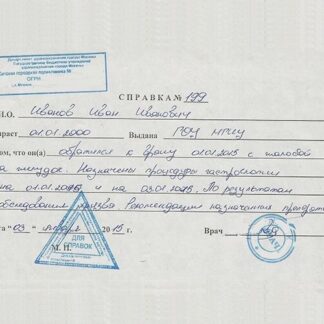 Департамент здравоохранения города Москвы
Государственное бюджетное учреждение
здравоохранения города Москвы
Детская городская поликлиника
ОГРН
г. Москва
СПРАВКА № 199
И.О. Иванов Иван Иванович
раст 01.01.2000 Выдана РОУ
ом, что он(а) обратился к врачу 01.01.2015 с жалобой
на желудок. Назначены процедуры гастроскопии
на 01.01.2015 и на 03.01.2015. По результатам
обследования Рекомендации
та «03» 2015 Врач
М. П.
ДЛЯ
СПРАВОК
ВРАЧ